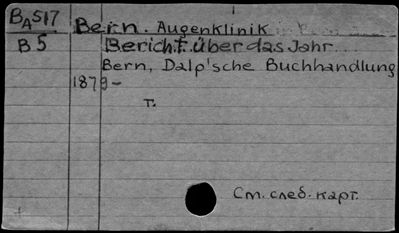 BA517 Bern. Augenklinik
B5 Bericht über das Jahr...
Bern, Dalp'sche Buchhandlung
1879-
т.
См. след. карт.